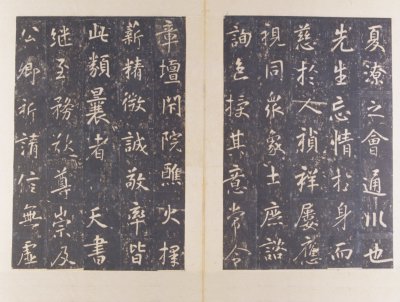 夏潦之會通川也
先生忘情於身而
慈於人禎祥屢應
視同衆象士庶諮
詢色授其意常令
章壇閑院醮火擇
薪精微誠敬率皆
此類曩者天書
繼至務於尊崇及
公卿祈請信無虛